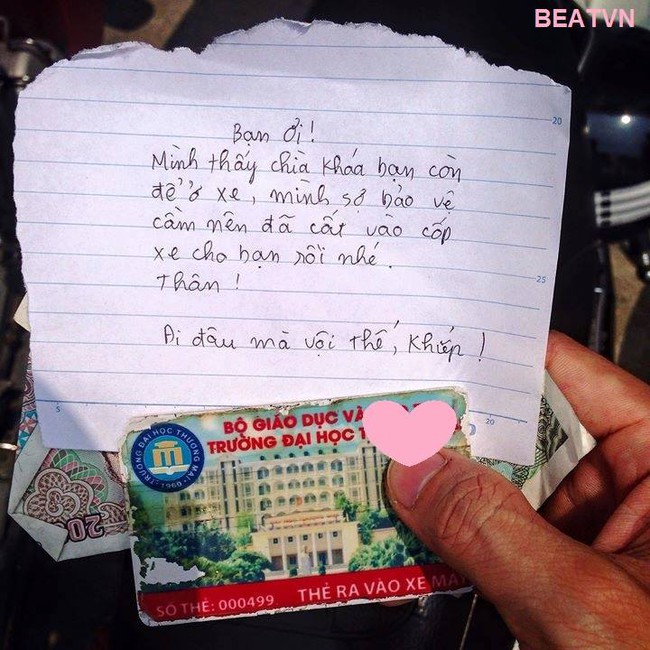 BEATVN
20
Bạn ơi!
Mình thấy chìa khóa bạn còn
để ở xe, mình sợ bảo vệ
cầm nên đã cất vào cốp
xe cho bạn rồi nhé.
25
Thân!
Đi đâu mà vội thế, khiếp!
5
20
BỘ GIÁO DỤC VÀ
TRƯỜNG ĐẠI HỌC T
TRƯỜNG ĐẠI HỌC THƯƠNG MẠI
1960
20
SỐ THẺ: 000499 THẺ RA VÀO XE MÁ